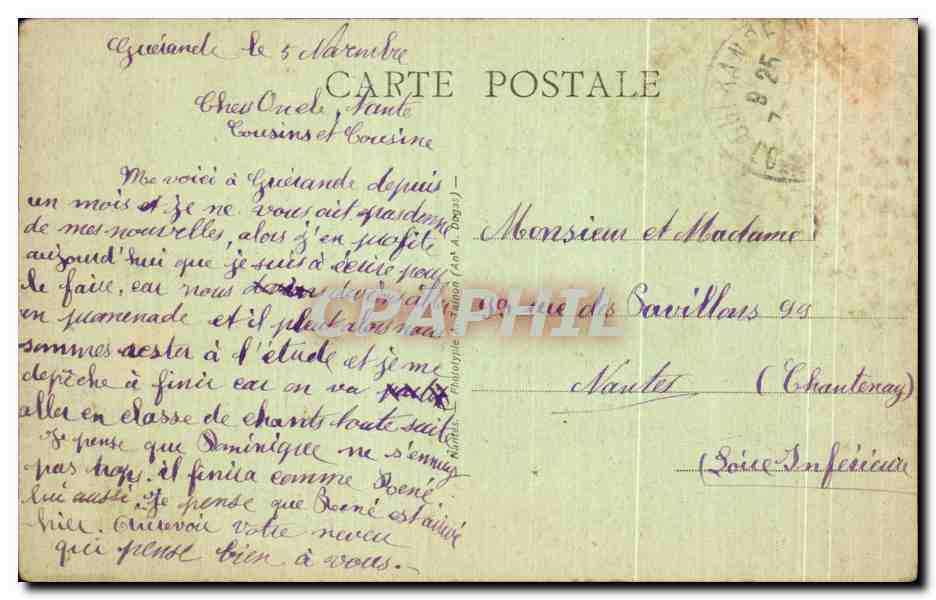 Guérande le 5 Novembre
CARTE POSTALE
Cher Oncle, Tante
Cousins et Cousine
Me voici à Guérande depuis
un mois et je ne vous ait pas donné
de mes nouvelles, alors j'en profite
aujourd'hui que je suis à écrire pour
le faire, car nous devions aller
en promenade et il pleut alors nous
sommes rester à l'étude et je me
depêche à finir car on va
aller en classe de chants toute suite
Je pense que Dominique ne s'ennuy
pas trop. il finira comme René
lui aussi. Je pense que René est arrivé
hier. Aurevoir votre neveu
qui pense bien à vous.
Nantes. — Phototypie
(Ane A. Dugas) —
Monsieur et Madame
99 rue des Pavillons 99
Nantes (Chantenay)
(Loire Inférieure
8 25
7
CPAPHIL